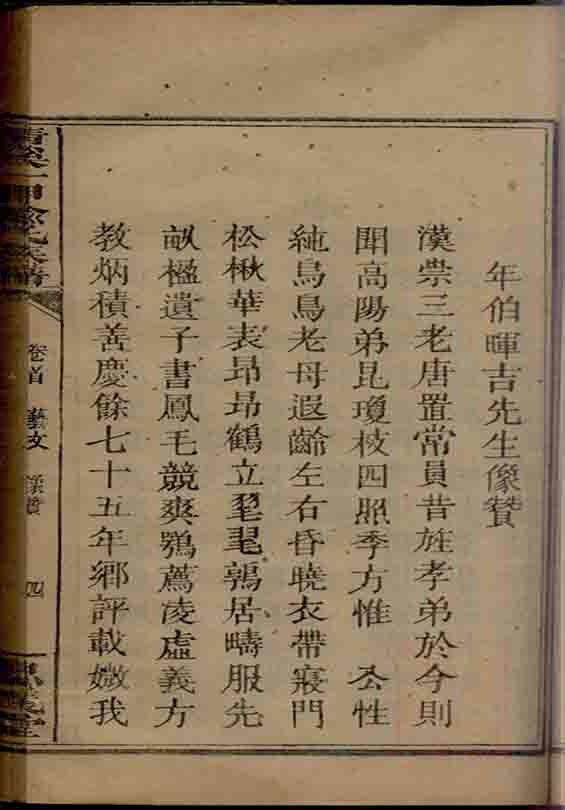 年伯暉吉先生像贊
漢崇三老唐置常員昔旌孝弟於今則
聞高陽弟昆瓊枝四照季方惟 公性
純鳥鳥老母遐齡左右昏曉衣帶寢門
松楸華表昂昂鶴立翯翯鶉居疇服先
畝楹遺子書鳳毛競爽鶚薦凌虛義方
教炳積善慶餘七十五年鄉評載媺我
卷首 藝文 像贊 四